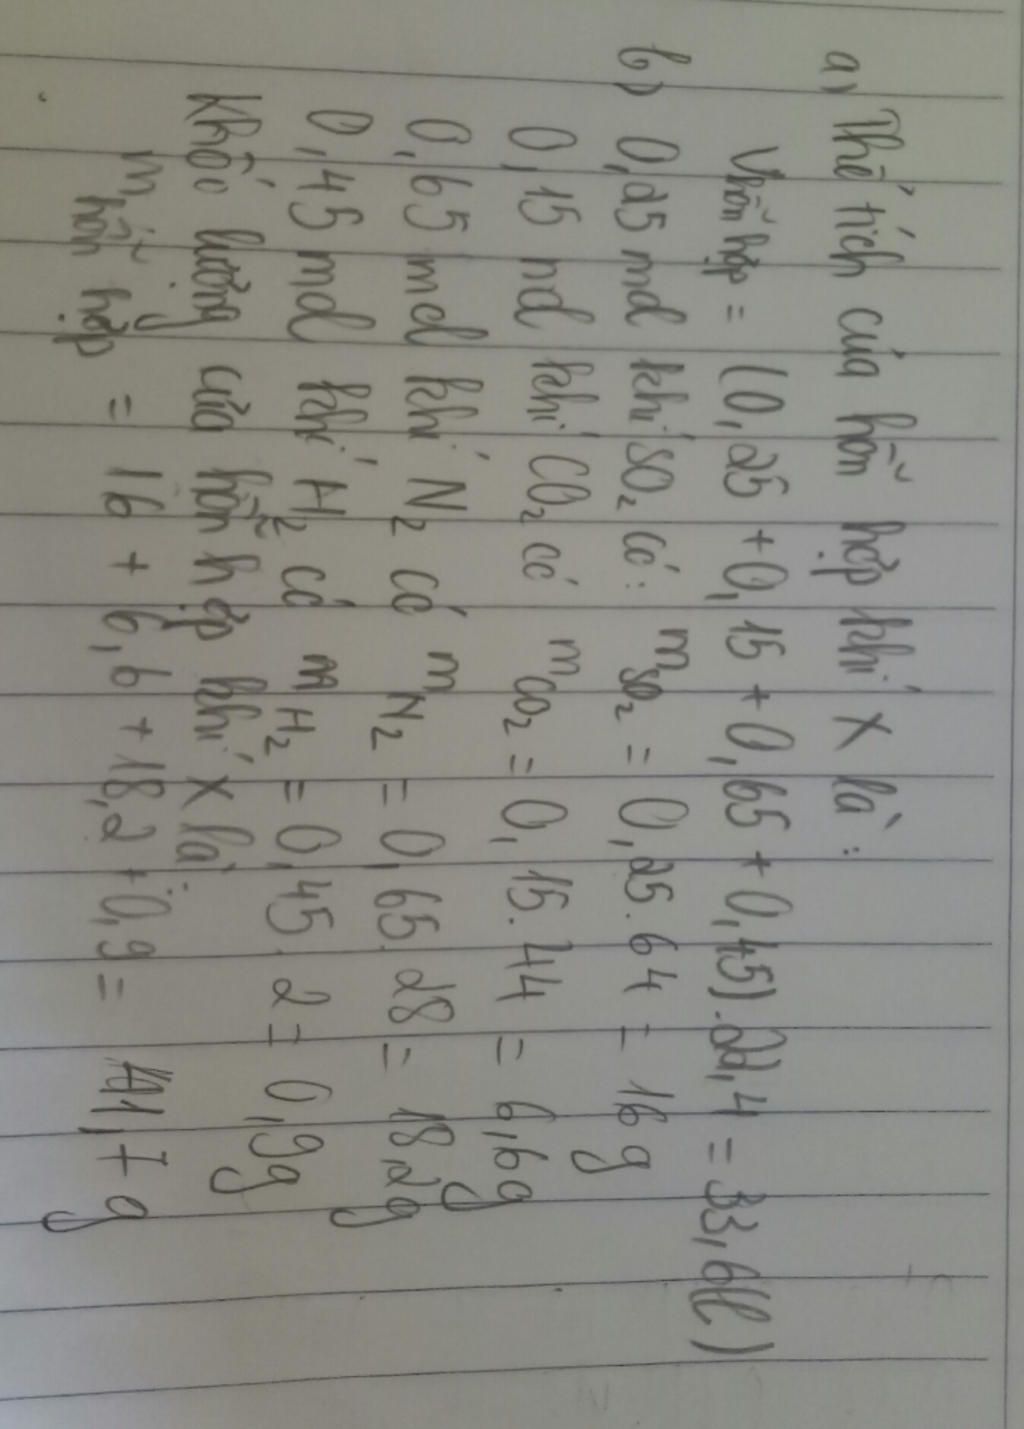 a) Thể tích của hỗn hợp khí X là:
Vhỗn hợp = (0,25 + 0,15 + 0,65 + 0,45).22,4 = 33,6(l)
b) 0,25 mol khí SO₂ có: mSO₂ = 0,25.64 = 16g
0,15 mol khí CO₂ có mCO₂ = 0,15.44 = 6,6g
0,65 mol khí N₂ có mN₂ = 0,65.28 = 18,2g
0,45 mol khí H₂ có mH₂ = 0,45.2 = 0,9g
Khối lượng của hỗn hợp khí X là:
mhỗn hợp = 16 + 6,6 + 18,2 + 0,9 = 41,7 g